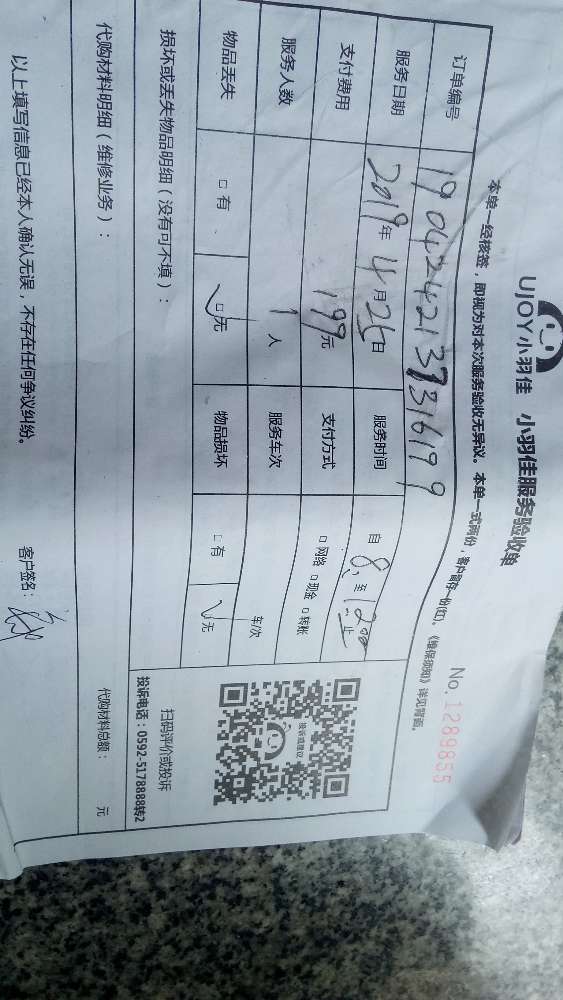 UJOY小羽佳 小羽佳服务验收单
No.1289855
本单一经核签,即视为对本次服务验收无异议。本单一式两份,客户留存一份(红)。《维保须知》详见背面。
订单编号 19042421373316199
服务日期 2019年4月25日 服务时间 自8:至12:00止
支付费用 199元 支付方式 □网络 □现金 □转账
服务人数 1人 服务车次 车次
物品丢失 □有 □无 物品损坏 □有 □无
损坏或丢失物品明细(没有可不填):
扫码评价或投诉
投诉电话:0592-5178888转2
代购材料明细(维修业务): 代购材料总额: 元
以上填写信息已经本人确认无误,不存在任何争议纠纷。 客户签名: